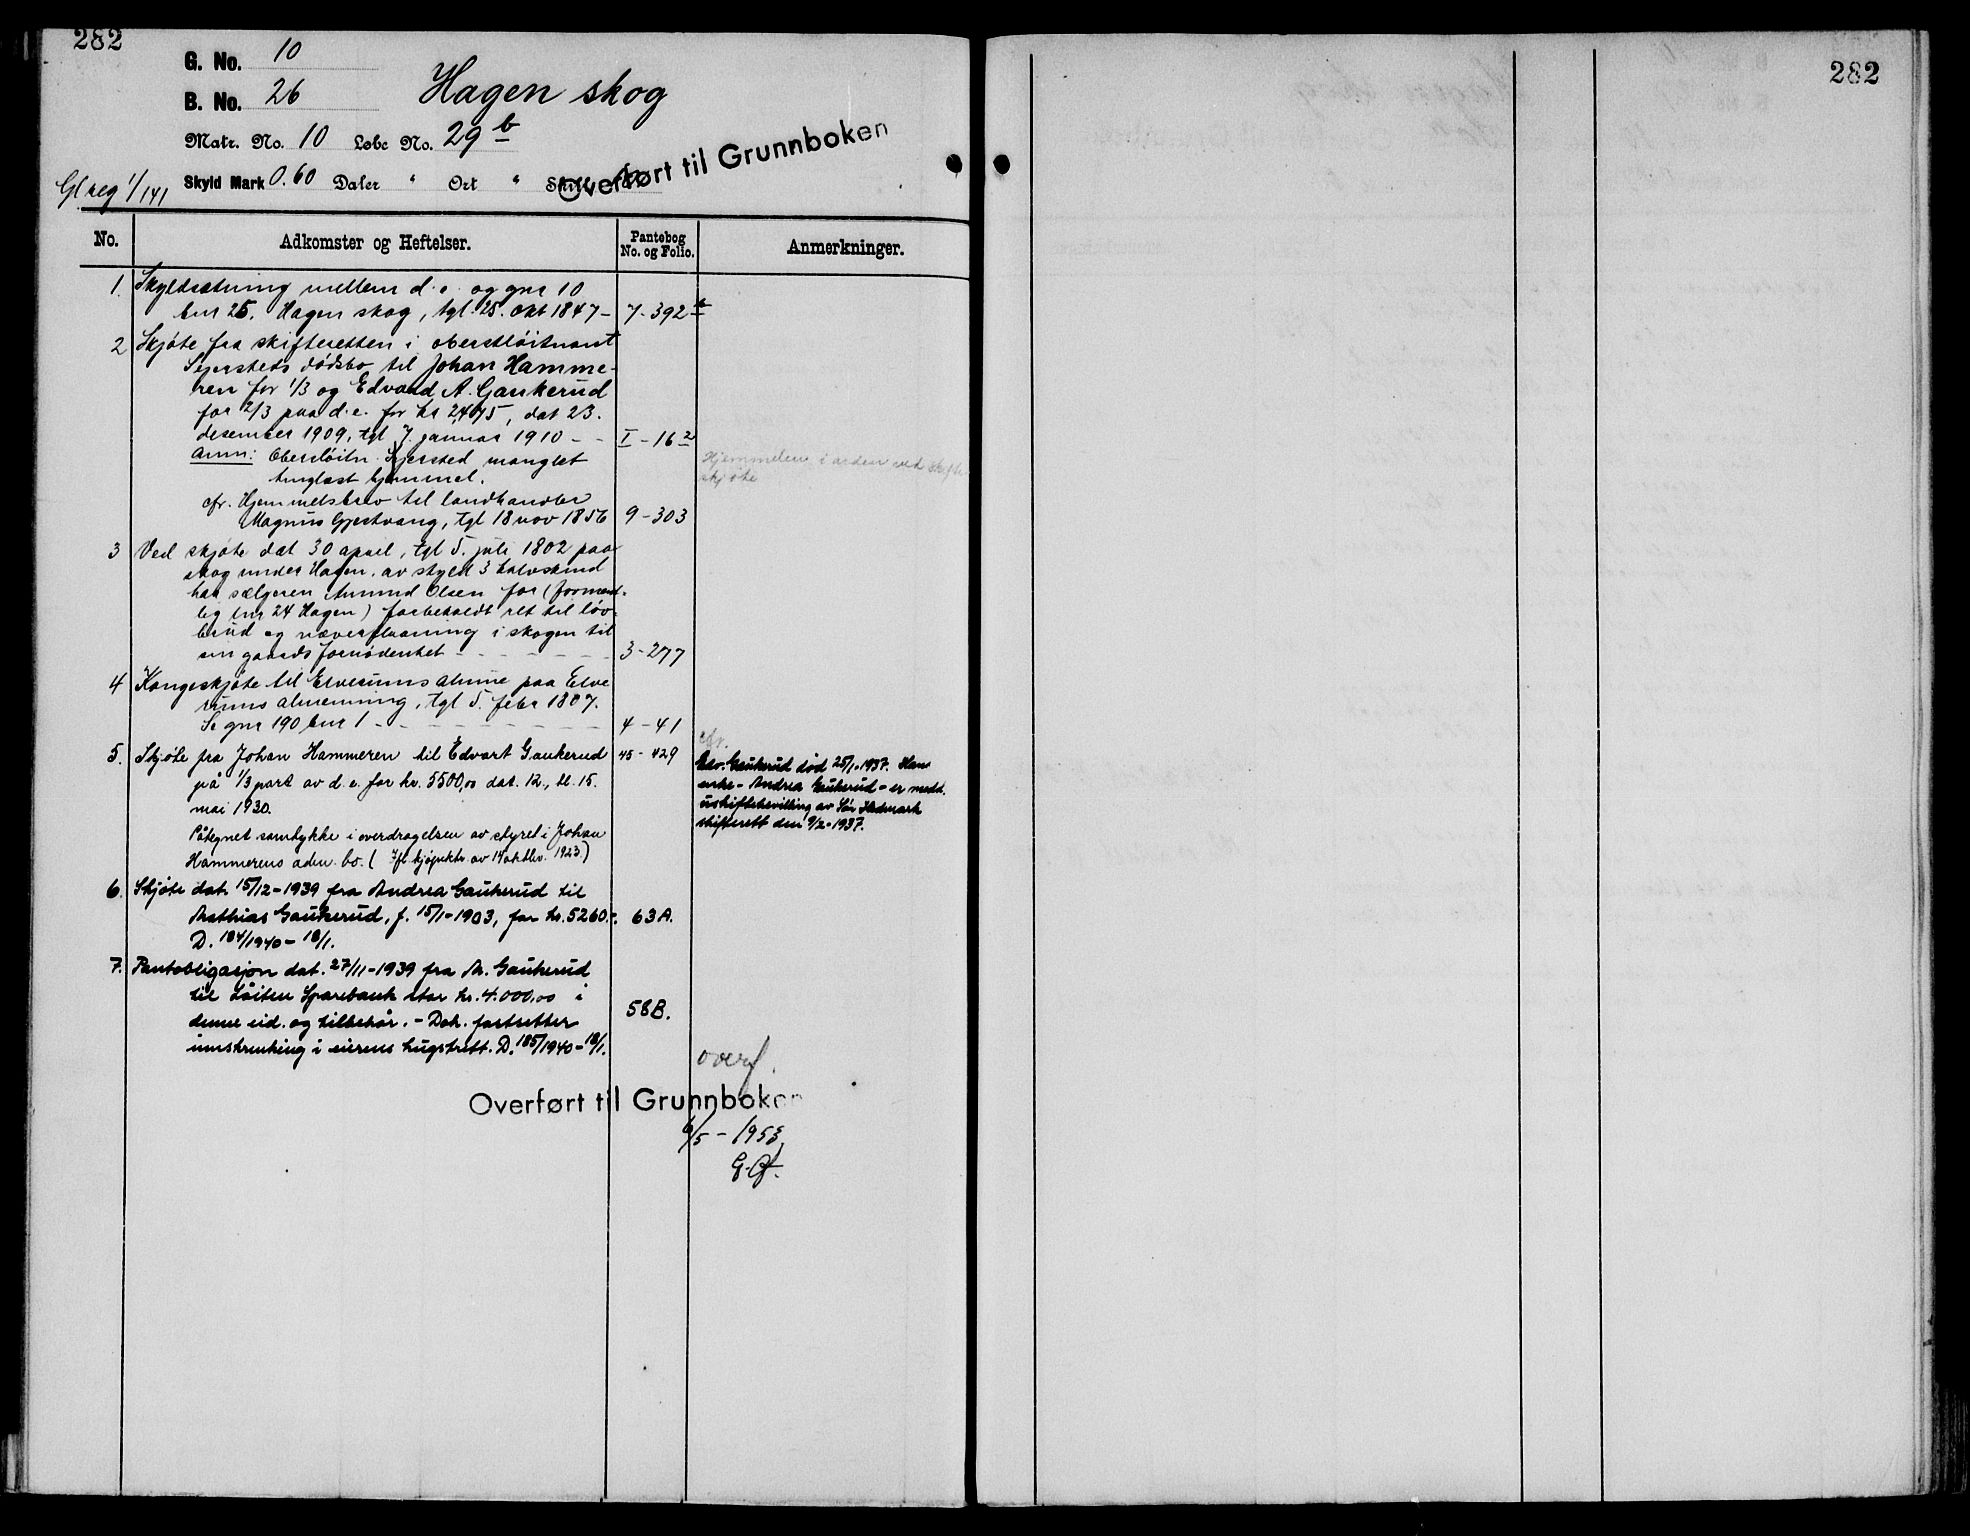 282
G. No. 10
B. No. 26
Hagen skog
Matr. No. 10 Løbe No. 29 b
Gl reg 1/141
Skyld Mark 0.60 Daler " Ort "
Overført til Grunnboken
No.
Adkomster og Heftelser.
Pantebog No. og Folio.
Anmerkninger.
1. Skyldsætning mellem d.e. og gnr 10
bnr 25. Hagen skog, tgl. 25. okt 1847 – 7-392 b
2 Skjøte fra skifteretten i oberstløitnant
Sejersteds dødsbo til Johan Hamme-
ren for 1/3 og Edvard A. Gaukerud
for 2/3 paa d.e. for kr 2,475, dat 23.
desember 1909, tgl 7. januar 1910 - - I-16 2
Anm: Oberstløitn. Sejersted manglet
tinglæst hjemmel.
Hjemmelen i orden ved skifte-
skjøte
cfr. Hjemmelsbrev til landhandler
Magnus Gjestvang, tgl 18 nov 1856 9-303
3 Ved skjøte dat 30 april, tgl 5. juli 1802 paa
skog under Hagen, av skyld 3 kalvskind
har sælgeren Amund Olsen for (forment-
lig bnr 24 Hagen) forbeholdt ret til løv-
brud og næverflaaning i skogen til
sin gaards fornødenhet - - - - - 3-277
4 Kongeskjøte til Elverums almue paa Elve
rums almenning, tgl 5. febr 1807.
Se gnr 190 bnr 1 - - - - - 4-41
5. Skjøte fra Johan Hammeren til Edvart Gaukerud 45-429
på 1/3 part av d.e. for kr. 5500,00 dat. 12., tl. 15.
mai 1930.
Påtegnet samtykke i overdragelsen av styret i Johan
Hammerens adm. bo. ( Jfl. kjøpektr. av 14 oktbr. 1923)
cfr.
Edv. Gaukerud død 25/1-1937. Hans
enke – Andrea Gaukerud – er medd.
uskiftebevilling av Sør Hedmark
skifterett den 9/2-1937.
6. Skjøte dat. 15/12-1939 fra Andrea Gaukerud til
Mathias Gaukerud, f. 15/1-1903, for kr. 5260.-. 63A.
D. 184/1940 – 18/1.
7. Pantobligasjon dat. 27/11-1939 fra M. Gaukerud
til Løiten Sparebank stor kr. 4.000,00 i
denne eid. og tilbehør. – Dok. fastsetter 58B.
innskrenking i eierens hugstrett. D. 185/1940 – 18/1.
overf.
Overført til Grunnboken
6/5 – 1953
282